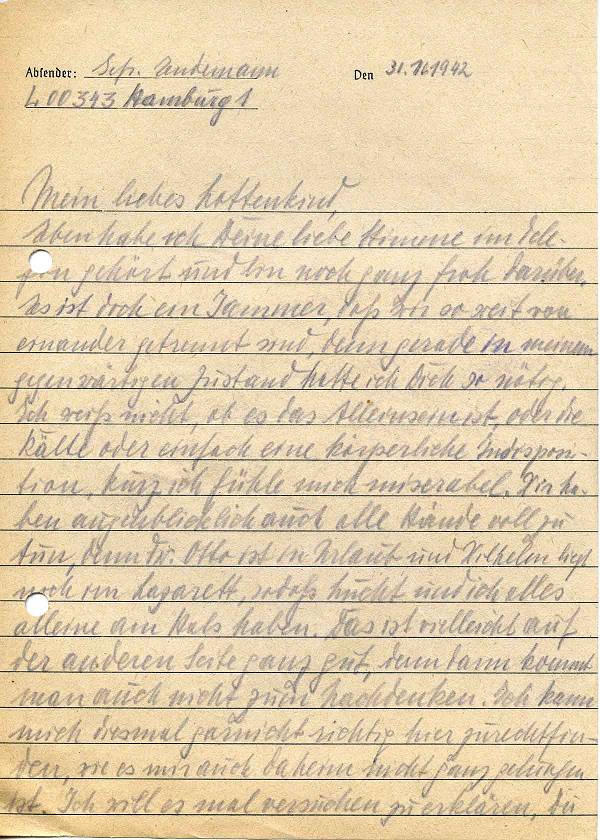 Absender: Gefr. Lindemann
Den 31.
L 00343 Hamburg 1
Mein liebes Lottenkind,
eben habe ich Deine liebe Stimme im Tele-
fon gehört und bin noch ganz froh darüber.
Es ist doch ein Jammer, daß wir so weit von
einander getrennt sind, denn gerade in meinem
gegenwärtigen Zustand hätte ich Dich so nötig.
Ich weiß nicht, ob es das Alleinsein ist, oder die
Kälte oder einfach eine körperliche Indisposi-
tion, kurz ich fühle mich miserabel. Wir ha-
ben augenblicklich auch alle Hände voll zu
tun, denn Otto ist in Urlaub und Wilhelm liegt
noch im Lazarett, sodaß und ich alles
alleine am Hals haben. Das ist vielleicht auf
der anderen Seite ganz gut, denn dann kommt
man auch nicht zum Nachdenken. Ich kann
mich diesmal garnicht richtig hier zurechtfin-
den, wie es mir auch daheim nicht ganz gelungen
ist. Ich will es mal versuchen zu erklären, Du